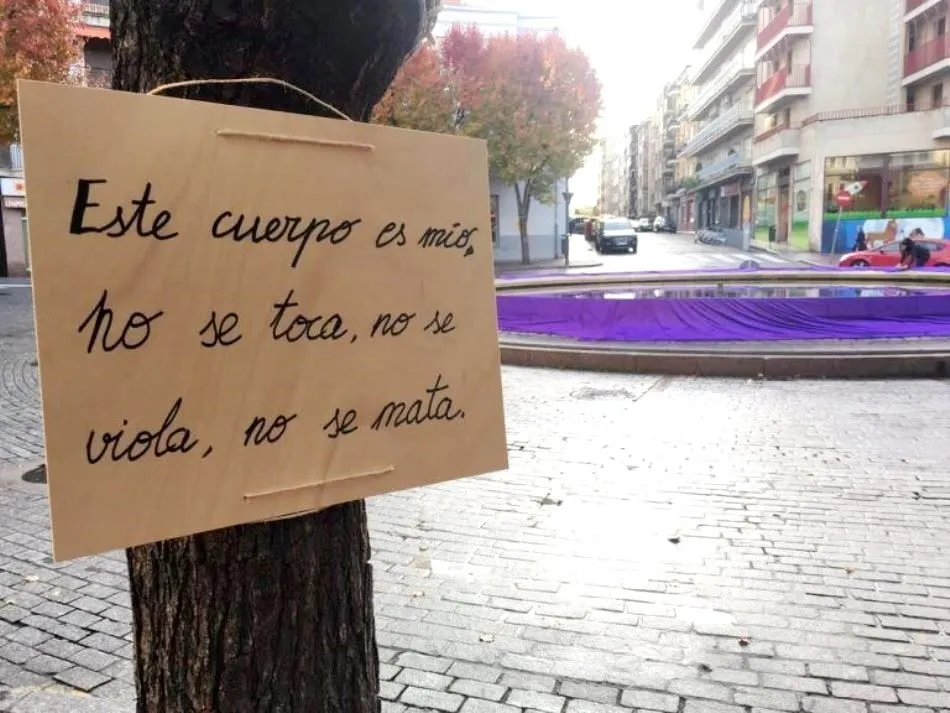 Este cuerpo es mío,
no se toca, no se
viola, no se mata.